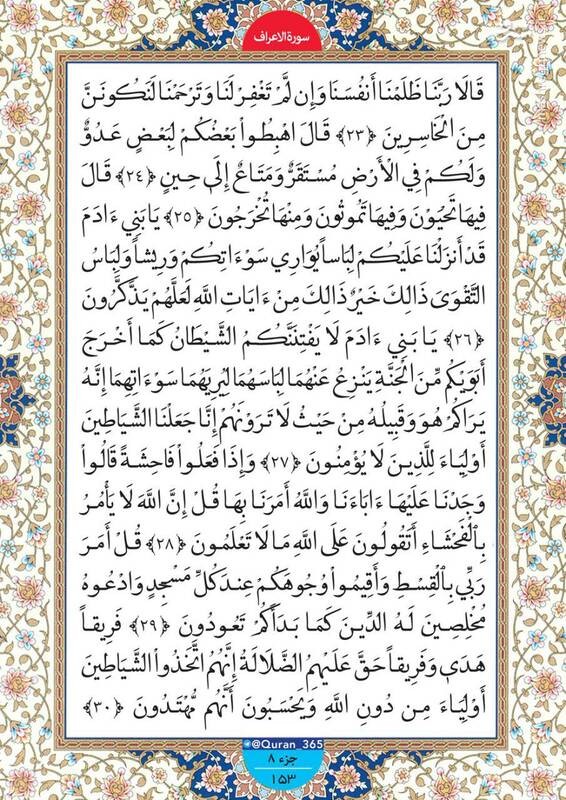 سورة الاعراف
قَالَا رَبَّنَا ظَلَمْنَا أَنفُسَنَا وَإِن لَّمْ تَغْفِرْ لَنَا وَتَرْحَمْنَا لَنَكُونَنَّ
مِنَ الْخَاسِرِينَ ﴿٢٣﴾ قَالَ اهْبِطُواْ بَعْضُكُمْ لِبَعْضٍ عَدُوٌّ
وَلَكُمْ فِي الْأَرْضِ مُسْتَقَرٌّ وَمَتَاعٌ إِلَى حِينٍ ﴿٢٤﴾ قَالَ
فِيهَا تَحْيَوْنَ وَفِيهَا تَمُوتُونَ وَمِنْهَا تُخْرَجُونَ ﴿٢٥﴾ يَا بَنِي ءَادَمَ
قَدْ أَنزَلْنَا عَلَيْكُمْ لِبَاساً يُوَارِي سَوْءَاتِكُمْ وَرِيشاً وَلِبَاسُ
التَّقْوَى ذَالِكَ خَيْرٌ ذَالِكَ مِنْ ءَايَاتِ اللَّهِ لَعَلَّهُمْ يَذَّكَّرُونَ
﴿٢٦﴾ يَا بَنِي ءَادَمَ لَا يَفْتِنَنَّكُمُ الشَّيْطَانُ كَمَا أَخْرَجَ
أَبَوَيْكُم مِّنَ الْجَنَّةِ يَنزِعُ عَنْهُمَا لِبَاسَهُمَا لِيُرِيَهُمَا سَوْءَاتِهِمَا إِنَّهُ
يَرَاكُمْ هُوَ وَقَبِيلُهُ مِنْ حَيْثُ لَا تَرَوْنَهُمْ إِنَّا جَعَلْنَا الشَّيَاطِينَ
أَوْلِيَاءَ لِلَّذِينَ لَا يُؤْمِنُونَ ﴿٢٧﴾ وَإِذَا فَعَلُواْ فَاحِشَةً قَالُواْ
وَجَدْنَا عَلَيْهَا ءَابَاءَنَا وَاللَّهُ أَمَرَنَا بِهَا قُلْ إِنَّ اللَّهَ لَا يَأْمُرُ
بِالْفَحْشَاءِ أَتَقُولُونَ عَلَى اللَّهِ مَا لَا تَعْلَمُونَ ﴿٢٨﴾ قُلْ أَمَرَ
رَبِّي بِالْقِسْطِ وَأَقِيمُواْ وُجُوهَكُمْ عِندَ كُلِّ مَسْجِدٍ وَادْعُوهُ
مُخْلِصِينَ لَهُ الدِّينَ كَمَا بَدَأَكُمْ تَعُودُونَ ﴿٢٩﴾ فَرِيقاً
هَدَى وَفَرِيقاً حَقَّ عَلَيْهِمُ الضَّلَالَةُ إِنَّهُمُ اتَّخَذُواْ الشَّيَاطِينَ
أَوْلِيَاءَ مِن دُونِ اللَّهِ وَيَحْسَبُونَ أَنَّهُم مُّهْتَدُونَ ﴿٣٠﴾
@Quran_365
جزء ٨
١٥٣